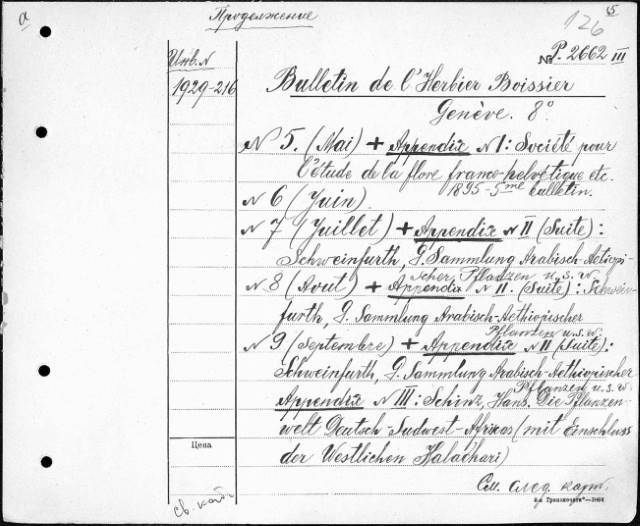 a
Продолжение
126
5
№ P. 2662 III
Инв. N
1929-216
Bulletin de l'Herbier Boissier
Genève. 8°
N 5. (Mai) + Appendix N I: Société pour
l'étude de la flore franco-helvétique etc.
1895-5me bulletin.
N 6 (Juin).
N 7 (Juillet) + Appendix N II (Suite):
Schweinfurth, G. Sammlung Arabisch-Aethiopi-
scher Pflanzen u. s. w.
N 8 (Aout) + Appendix N II. (Suite): Schwein-
furth, G. Sammlung Arabisch-Aethiopischer
Pflanzen u. s. w.
N 9 (Septembre) + Appendix N II (Suite):
Schweinfurth, G. Sammlung Arabisch-Aethiopischer
Pflanzen u. s. w.
Appendix N III: Schinz, Hans. Die Pflanzen-
welt Deutsch-Sudwest-Africas (mit Einschluss
der Westlichen Kalachari)
Цена
См. след. карт.
св. кат